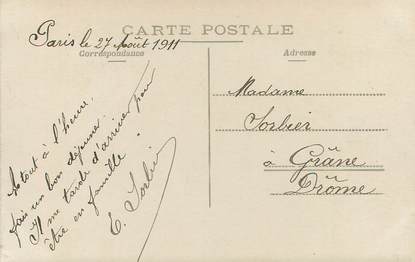 CARTE POSTALE
Paris le 27 Août 1911
Correspondance
Adresse
A tout à l'heure,
fais un bon déjeuner.
Il me tarde d'arriver pour
être en famille.
E. Sorbier
Madame
Sorbier
à Grâne
Drôme